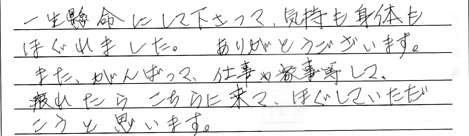 一生懸命にして下さって、気持も身体も
ほぐれました。 ありがとうございます。
また、がんばって、仕事や家事等して、
疲れたら こちらに来て、ほぐしていただ
こうと思います。